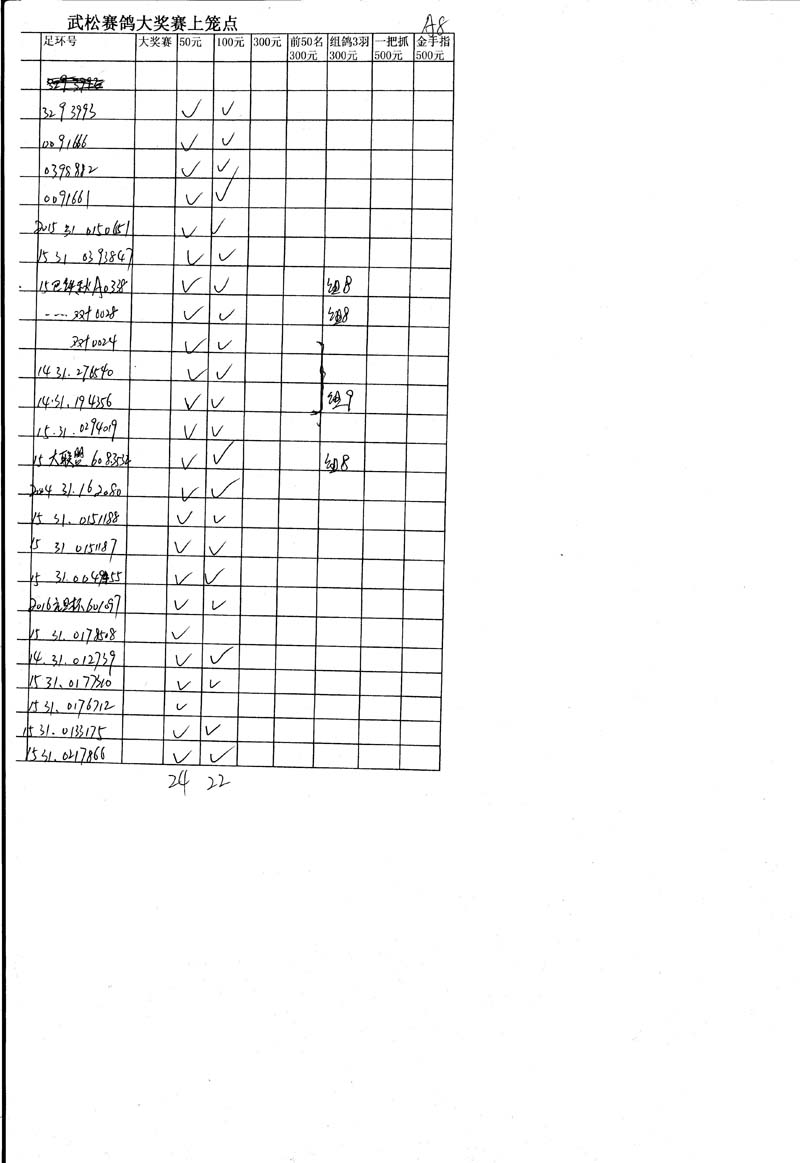 武松赛鸽大奖赛上笼点 A8
足环号 大奖赛 50元 100元 300元 前50名300元 组鸽3羽300元 一把抓500元 金手指500元
3293993 ✓ ✓
0091666 ✓ ✓
0398882 ✓ ✓
0091661 ✓ ✓
2015 31 0150651 ✓ ✓
15 31 0393847 ✓ ✓
15 A0338 ✓ ✓ 组8
0028 ✓ ✓ 组8
0024 ✓ ✓
14 31.276540 ✓ ✓
14.31.194356 ✓ ✓ 组9
15.31.0294019 ✓ ✓
15 大联盟 6083532 ✓ ✓ 组8
31.162080 ✓ ✓
15 31.0151188 ✓ ✓
15 31 0151187 ✓ ✓
15 31.0049455 ✓ ✓
2016元旦杯601097 ✓ ✓
15 31.0178508 ✓
14.31.012739 ✓ ✓
15 31.0177310 ✓ ✓
15 31.0176712 ✓
15 31.0133175 ✓ ✓
15 31.0217866 ✓ ✓
24 22